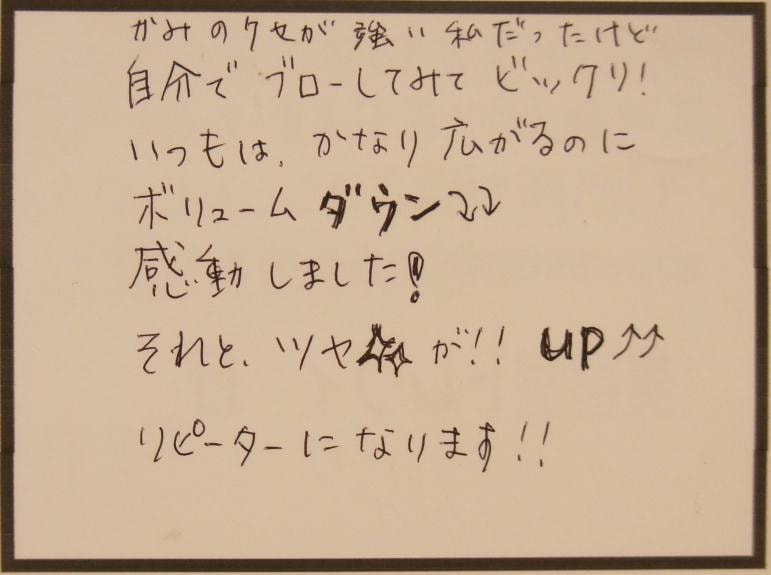 かみのクセが強い私だったけど
自分でブローしてみてビックリ!
いつもは、かなり広がるのに
ボリュームダウン⤵⤵
感動しました!
それと、ツヤ✨が!! UP↑↑
リピーターになります!!